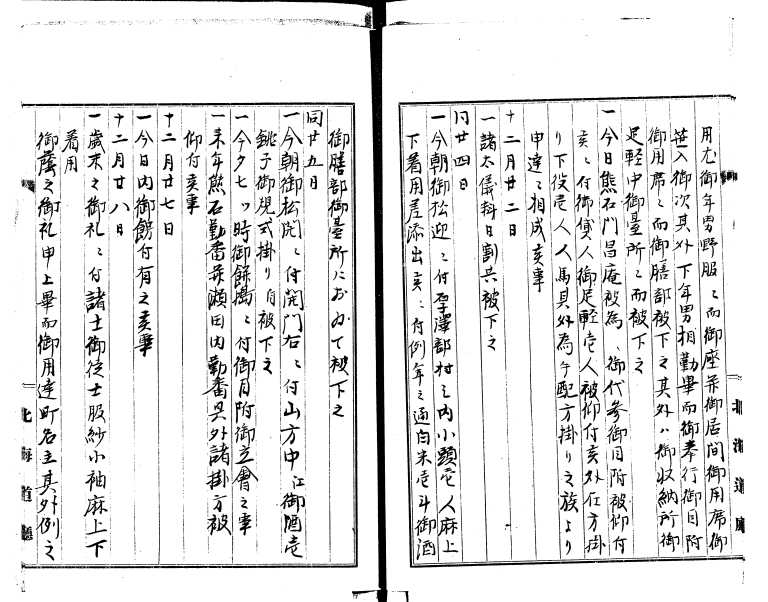 用尤御年男野服ニ而御座并御居間御用席御
笹入御次其外下年男相勤畢而御奉行御目附
御用席ニ而御膳部被下之其外ハ御収納所御
足軽中御臺所ニ而被下之
一今日熊石門昌庵被為ニ御代参御目附被仰付
亥ニ付御貸人御足軽壱人被仰付亥外仕方掛
り下役壱人人馬其外為午配方掛り之族より
申達ニ相成亥事
十二月廿二日
一諸太儀料日割共被下之
同廿四日
一今朝御松迎ニ付厚澤部村之内小頭壱人麻上
下着用差添出亥ニ付例年之通白米壱斗御酒
御膳部御臺所におゐて被下之
同廿五日
一今朝御松開ニ付開門右ニ付山方中江御酒壱
銚子御規式掛り自被下之
一今夕七ツ時御餅搗ニ付御目附御立會之事
一来年熊石勤番并瀬田内勤番其外諸掛方被
仰付亥事
十二月廿七日
一今日内御餝付有之亥事
十二月廿八日
一歳末之御礼ニ付諸士御徒士服紗小袖麻上下
着用
御蔭之御礼申上畢而御用達町名主其外例之
北海道廳
北海道廳